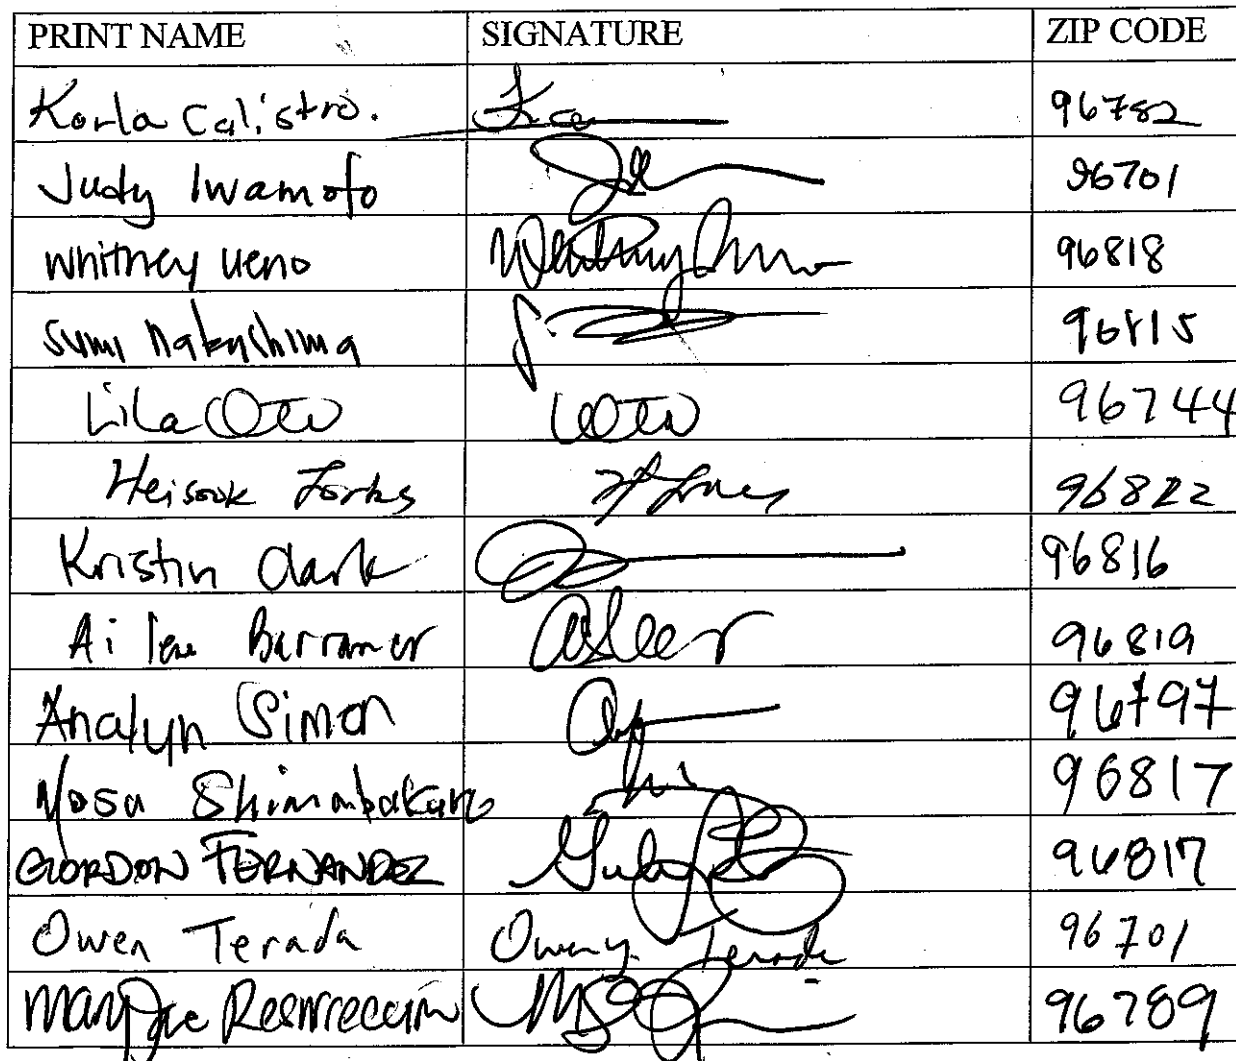 PRINT NAME SIGNATURE ZIP CODE
Karla Calistro. 96782
Judy Iwamoto 96701
Whitney Ueno Whitney Ueno 96818
Sumi Nakashima 96815
Lila Oto LOto 96744
Heisook Forbes 96822
Kristin Clark 96816
Ailene 96819
Analyn Simon 96797
Shimabakuro 96817
GORDON FERNANDEZ 96817
Owen Terada Owen Y. Terada 96701
Mary Resurreccion 96789